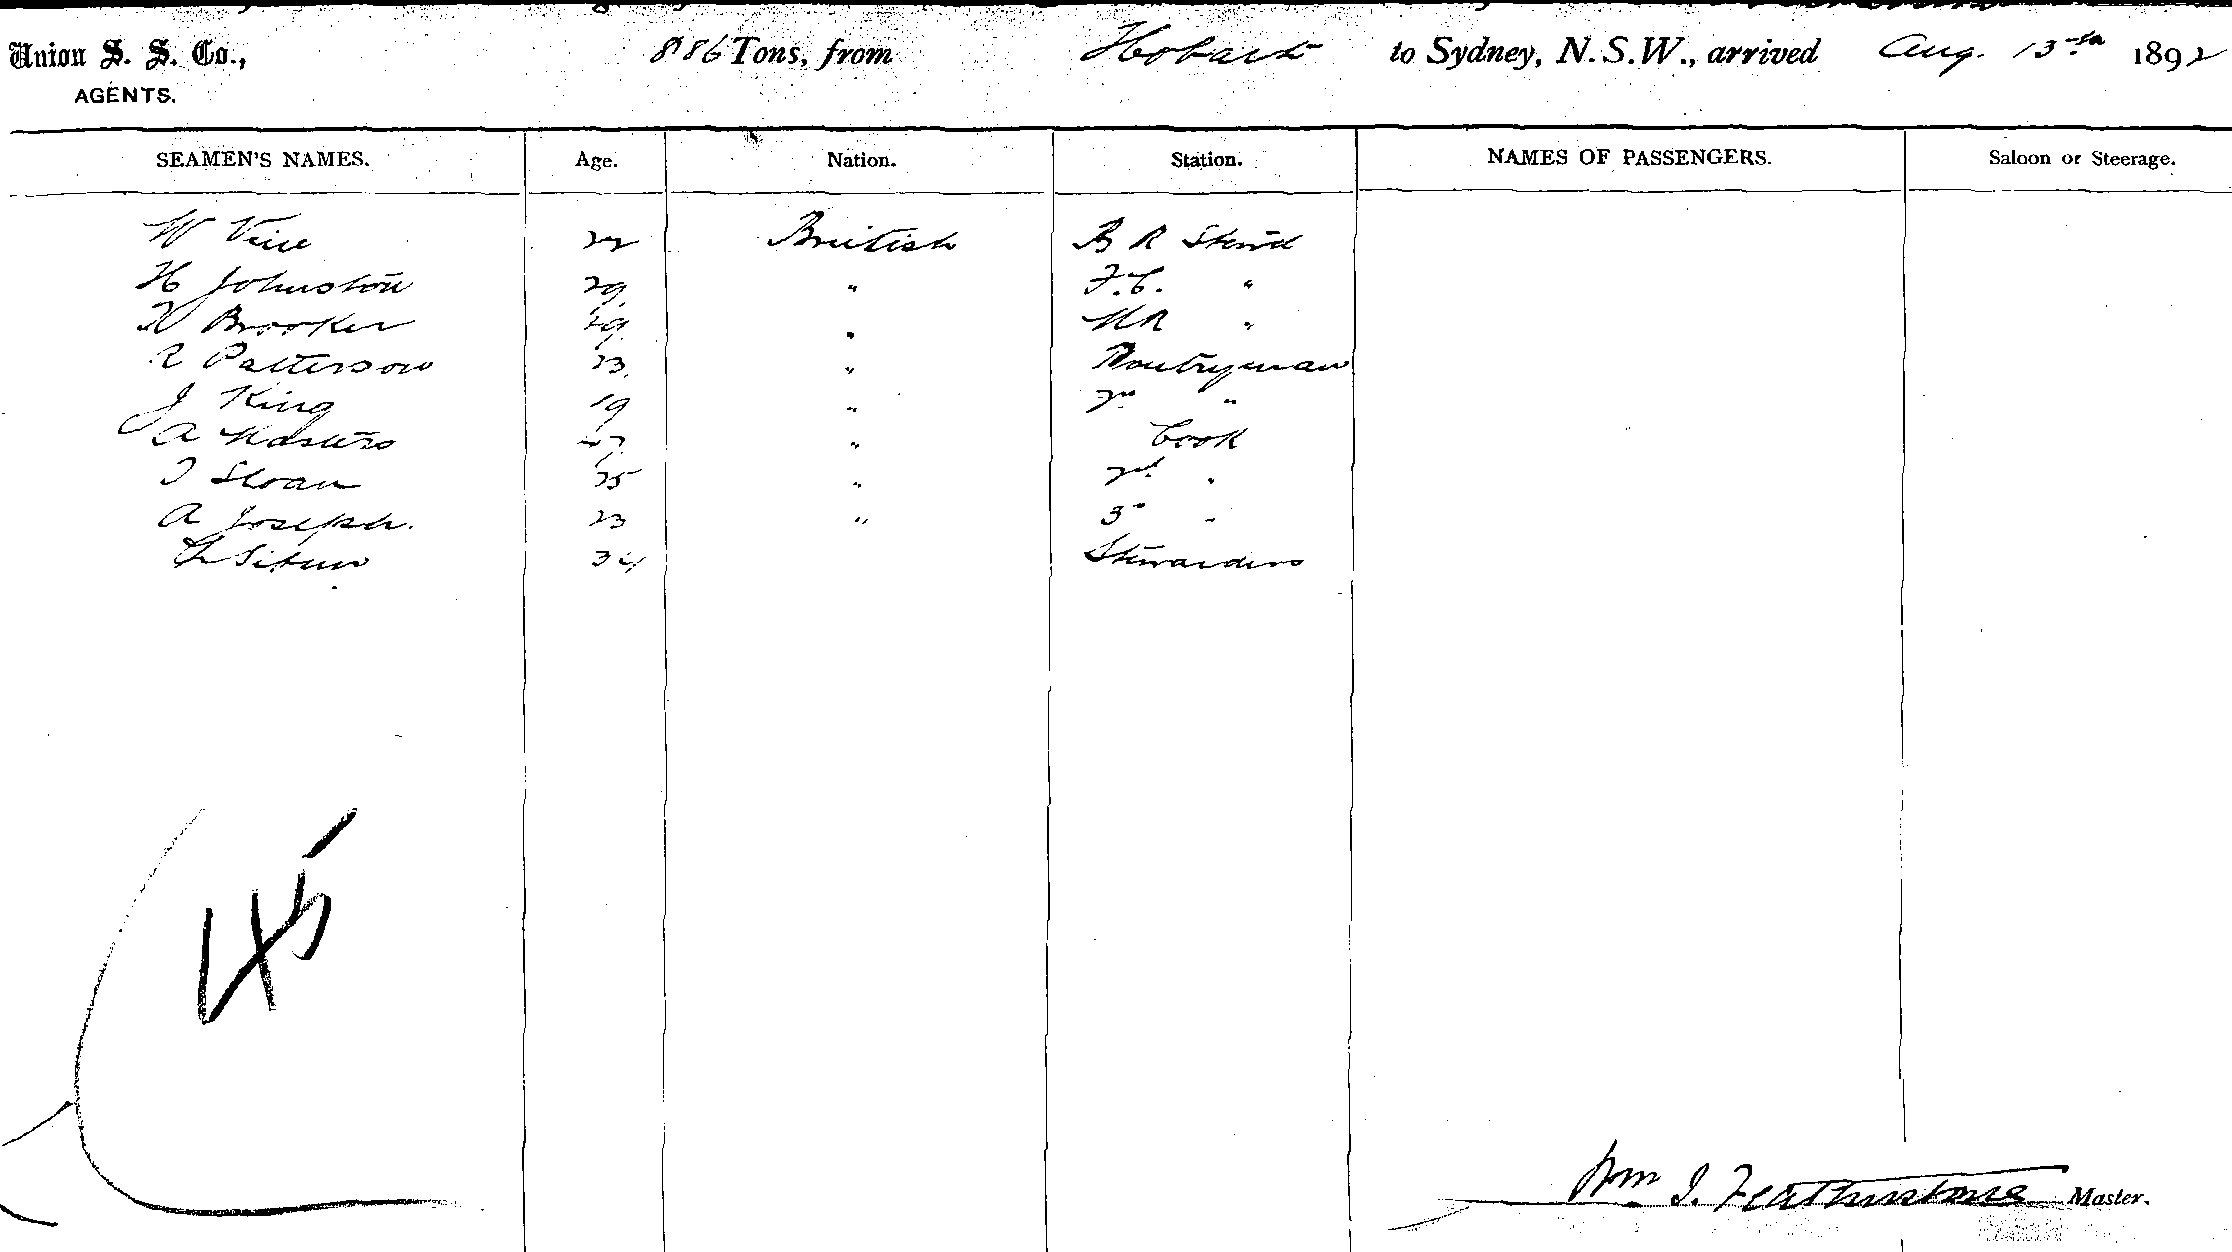 Union S. S. Co., 886 Tons, from Hobart to Sydney, N.S.W., arrived Aug. 13th 1892
AGENTS.
SEAMEN'S NAMES. Age. Nation. Station. NAMES OF PASSENGERS. Saloon or Steerage.
W 22 British B R Stew'd
H Johnston 29 " F.C. "
Brooker 29 " "
R Patterson 23 " Pantryman
J King 19 " 2nd "
A Masters " Cook
Sloan 25 " 2nd "
A Joseph. 23 " 3rd "
34 Stewardess
45
Wm J. Featherstone Master.